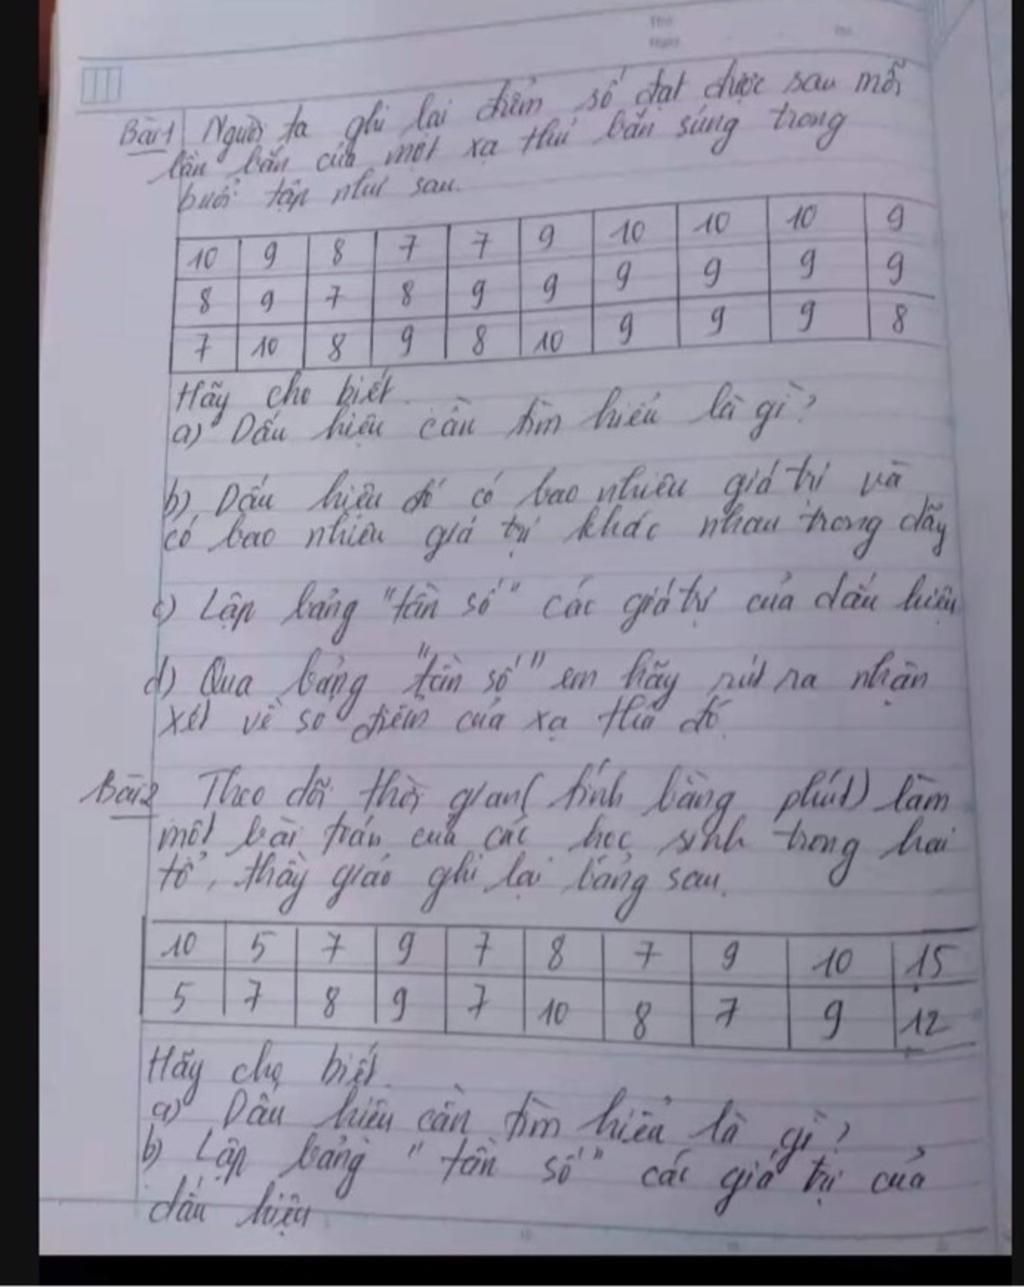 Bài 1 Người ta ghi lại điểm số đạt được sau mỗi
lần bắn của một xạ thủ bắn súng trong
buổi tập như sau.
10 9 8 7 7 9 10 10 10 9
8 9 7 8 9 9 9 9 9 9
7 10 8 9 8 10 9 9 9 8
Hãy cho biết.
a) Dấu hiệu cần tìm hiểu là gì?
b) Dấu hiệu đó có bao nhiêu giá trị và
có bao nhiêu giá trị khác nhau trong dãy
c) Lập bảng "tần số" các giá trị của dấu hiệu
d) Qua bảng "tần số" em hãy rút ra nhận
xét về số điểm của xạ thủ đó.
Bài 2 Theo dõi thời gian (tính bằng phút) làm
một bài toán của các học sinh trong hai
tổ, thầy giáo ghi lại bảng sau.
10 5 7 9 7 8 7 9 10 15
5 7 8 9 7 10 8 7 9 12
Hãy cho biết.
a) Dấu hiệu cần tìm hiểu là gì?
b) Lập bảng "tần số" các giá trị của
dấu hiệu